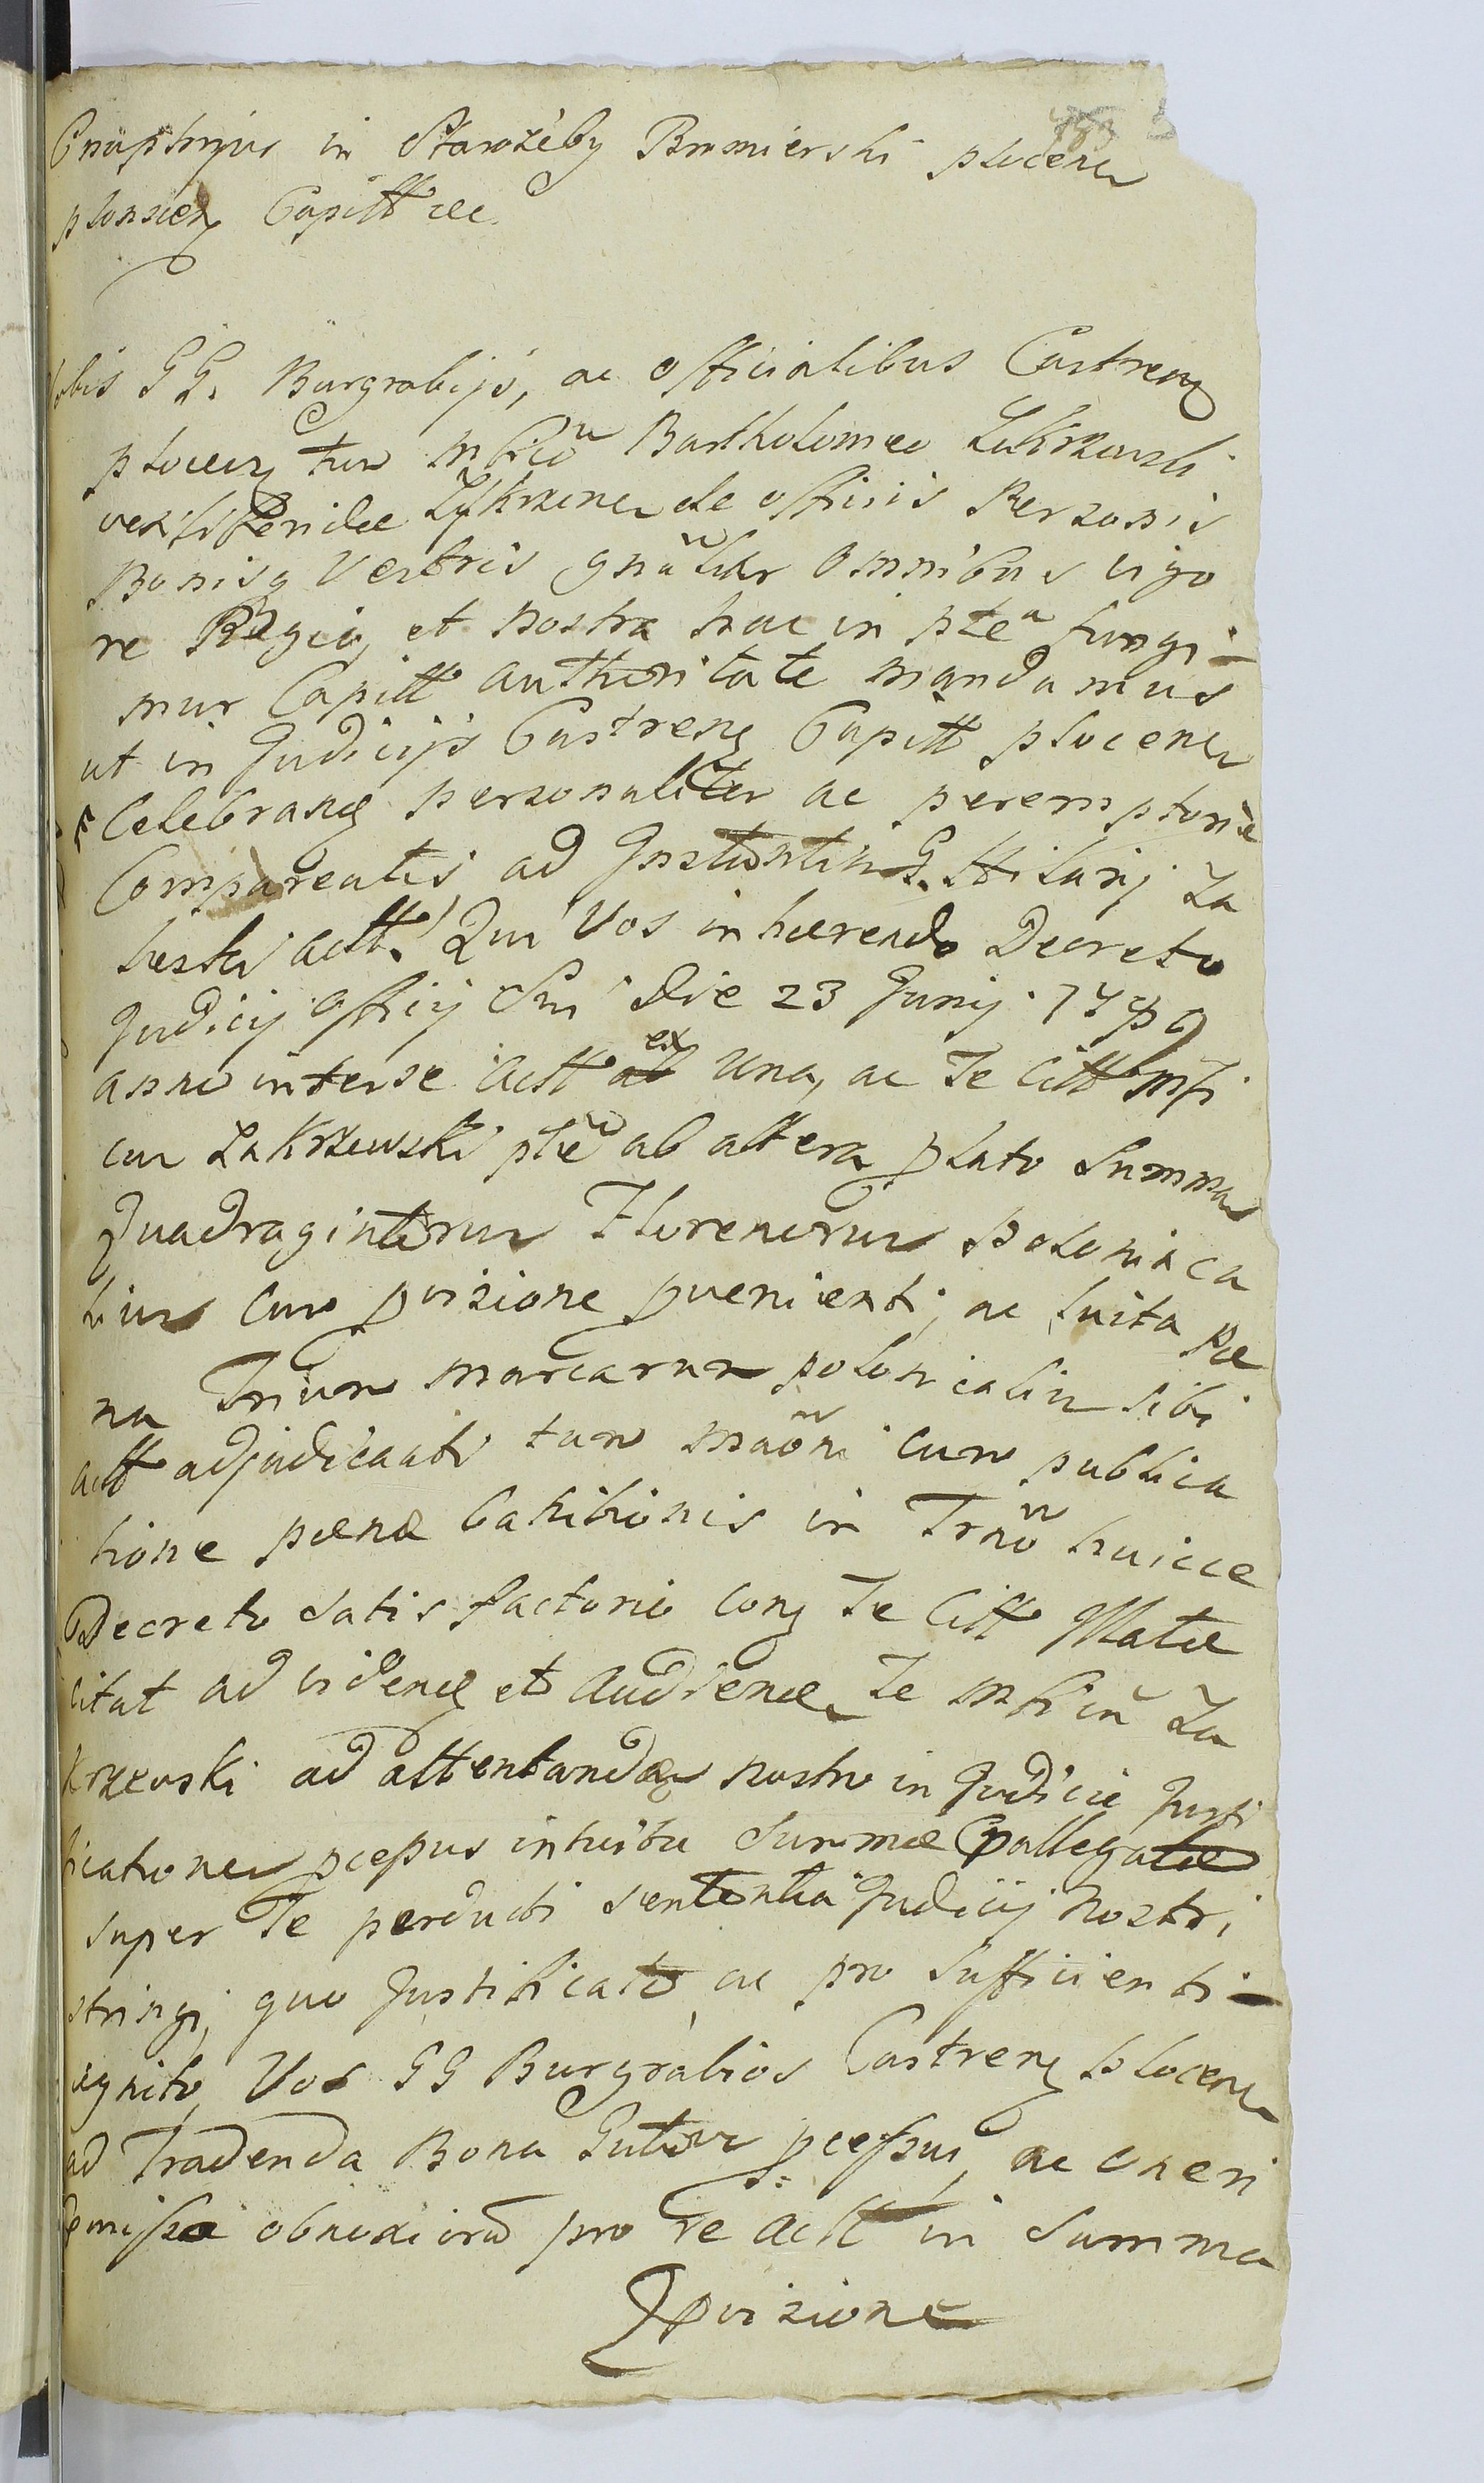 Onuphrijus in Staroźeby Bromierski plocen
plonscen Capitt etc
Vobis GG. Burgrabijs, ac officialibus Castren
plocen tum Mfico Bartholomeo Zakrzewski
vexillferidae Zykrzinen de officiis Personis
Bonisq Vestris gnaliter omnibus vigo
re Regia, et nostra hac in pte fungi-
mur Capitt authoritate mandamus
ut in Judicijs Castren Capitt plocen
Celebran personaliter ac peremptorie
Compareatis, ad Instantiam G. Hilarij Za
leski actt. Qui Vos inhaerendo Decreto
Judicij officij Sui die 23 Junij 1779
anno inter se actt ex una, ac Te Citt Mfi
cum Zakrzewski pte ab altera plato Summa
Quadraginta Florenorum Polonica
lium cum pvizione pvenienti, ac luita Pae
na Trium marcarum polonicaliu sibi
actt adjudicati tum maoni cum publica
tione paenae banitionis in Trno huicce
Decreto Satisfactorio con Te Citt Matae
citat ad viden et audiend Te Mficu Za
krzewski ad attentandam nostro in Judicio Justi
ficationem pcessus intuitu Summae pallegatae
super Te perducti sententia Judicij nostri
stringi, quo Justificato, ac pro sufficienti-
agnito, Vos GG Burgrabios Castren Plocen
ad Tradenda Bona pcessui, ac oneri
pmisso obnoxiora pro re actt in Summa
pvizione